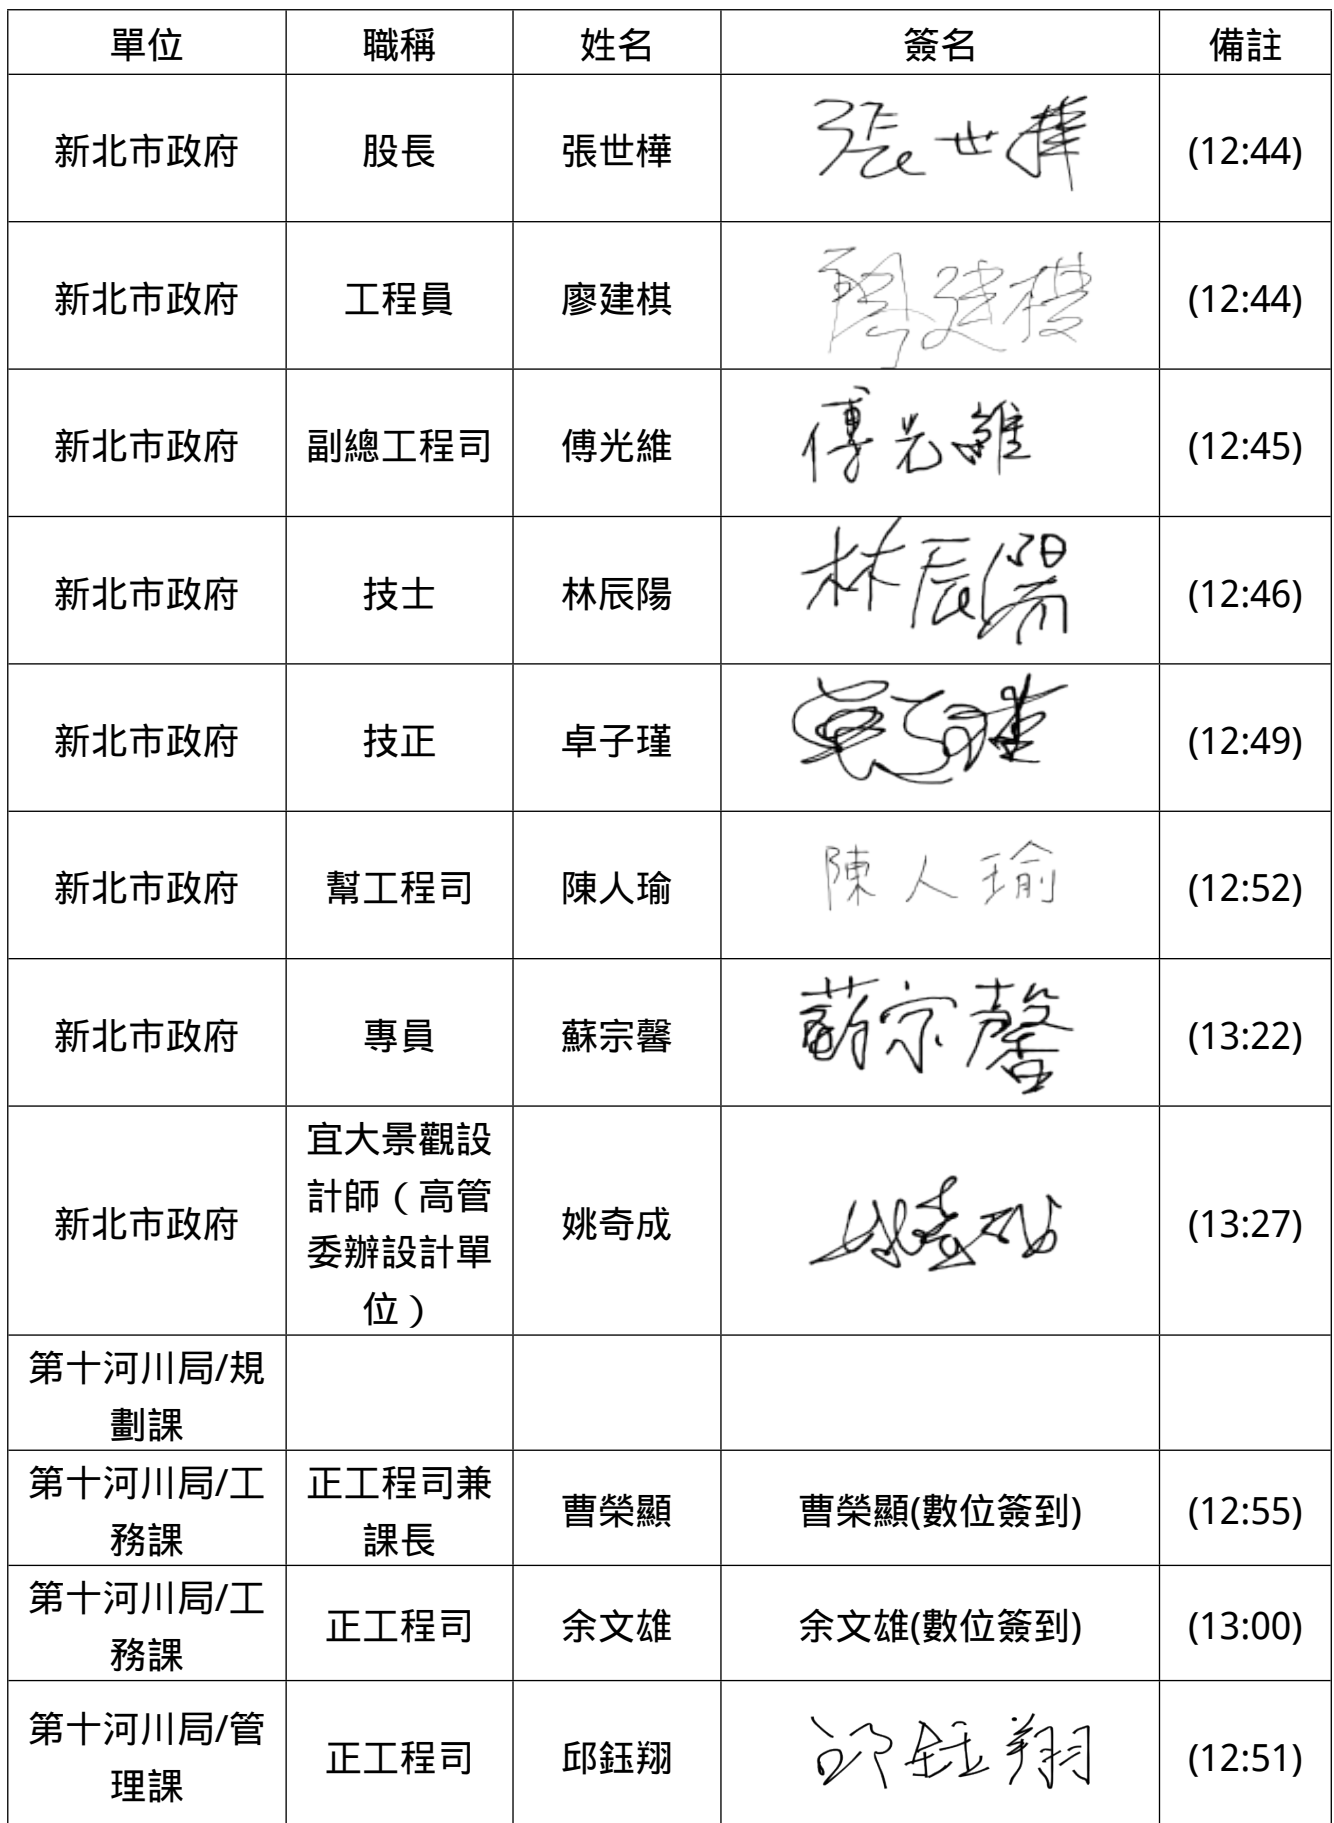 單位 職稱 姓名 簽名 備註
新北市政府 股長 張世樺 張世樺 (12:44)
新北市政府 工程員 廖建棋 廖建棋 (12:44)
新北市政府 副總工程司 傅光維 傅光維 (12:45)
新北市政府 技士 林辰陽 林辰陽 (12:46)
新北市政府 技正 卓子瑾 卓子瑾 (12:49)
新北市政府 幫工程司 陳人瑜 陳人瑜 (12:52)
新北市政府 專員 蘇宗馨 蘇宗馨 (13:22)
新北市政府 宜大景觀設
計師（高管
委辦設計單
位） 姚奇成 姚奇成 (13:27)
第十河川局/規
劃課
第十河川局/工
務課 正工程司兼
課長 曹榮顯 曹榮顯(數位簽到) (12:55)
第十河川局/工
務課 正工程司 余文雄 余文雄(數位簽到) (13:00)
第十河川局/管
理課 正工程司 邱鈺翔 邱鈺翔 (12:51)